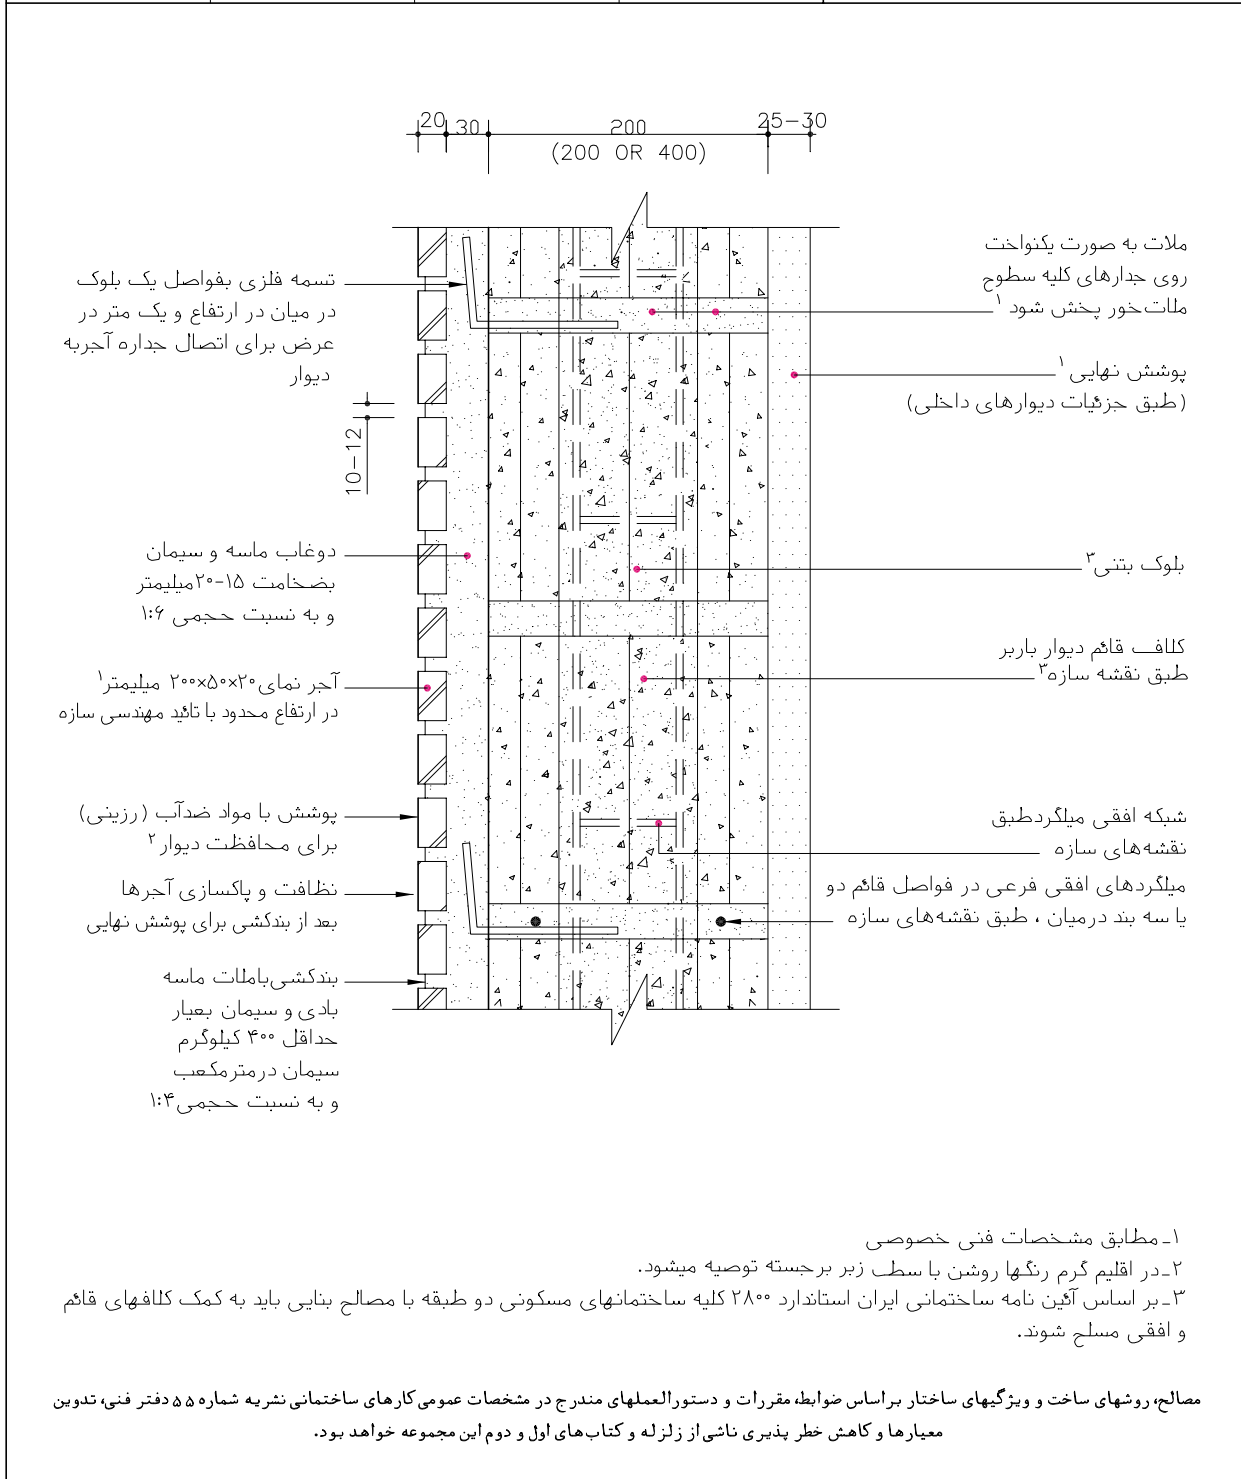 20
30
200
25-30
(200 OR 400)
ملات به صورت یکنواخت
روی جدارهای کلیه سطوح
ملات‌خور پخش شود ۱
پوشش نهایی ۱
(طبق جزئیات دیوارهای داخلی)
بلوک بتنی ۳
کلاف قائم دیوار باربر
طبق نقشه سازه ۳
شبکه افقی میلگردطبق
نقشه‌های سازه
میلگردهای افقی فرعی در فواصل قائم دو
یا سه بند درمیان ، طبق نقشه‌های سازه
تسمه فلزی بفواصل یک بلوک
در میان در ارتفاع و یک متر در
عرض برای اتصال جداره آجربه
دیوار
10-12
دوغاب ماسه و سیمان
بضخامت ۱۵-۲۰میلیمتر
و به نسبت حجمی ۱:۶
آجر نمای ۲۰×۵۰×۲۰۰ میلیمتر ۱
در ارتفاع محدود با تائید مهندسی سازه
پوشش با مواد ضدآب (رزینی)
برای محافظت دیوار ۲
نظافت و پاکسازی آجرها
بعد از بندکشی برای پوشش نهایی
بندکشی‌باملات ماسه
بادی و سیمان بعیار
حداقل ۴۰۰ کیلوگرم
سیمان درمترمکعب
و به نسبت حجمی۱:۴
۱ـ مطابق مشخصات فنی خصوصی
۲ـ در اقلیم گرم رنگها روشن با سطح زبر برجسته توصیه میشود.
۳ـ بر اساس آئین نامه ساختمانی ایران استاندارد ۲۸۰۰ کلیه ساختمانهای مسکونی دو طبقه با مصالح بنایی باید به کمک کلافهای قائم
و افقی مسلح شوند.
مصالح، روشهای ساخت و ویژگیهای ساختار براساس ضوابط، مقررات و دستورالعملهای مندرج در مشخصات عمومی کارهای ساختمانی نشریه شماره ۵۵ دفتر فنی، تدوین
معیارها و کاهش خطر پذیری ناشی از زلزله و کتاب‌های اول و دوم این مجموعه خواهد بود.